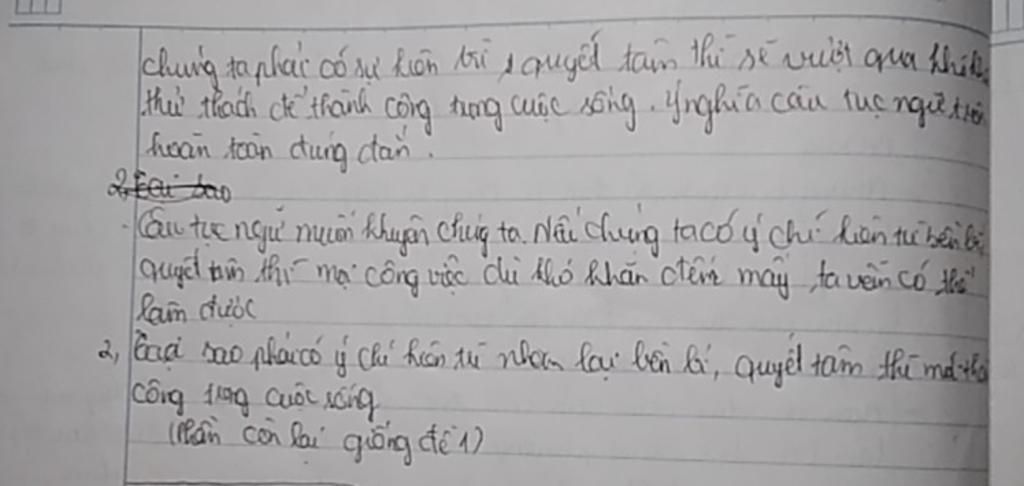 chúng ta phải có sự kiên trì, quyết tâm thì sẽ vượt qua khó khăn
thử thách để thành công trong cuộc sống. Ý nghĩa câu tục ngữ trên
hoàn toàn đúng đắn.
2, Tại sao
- Câu tục ngữ muốn khuyên chúng ta. Nếu chúng ta có ý chí kiên trì bền bỉ
quyết tâm thì mọi công việc dù khó khăn đến mấy, ta vẫn có thể
làm được
2, Tại sao phải có ý chí kiên trì nhẫn lại bền bỉ, quyết tâm thì mới
công trong cuộc sống
(Phần còn lại giống đề 1)